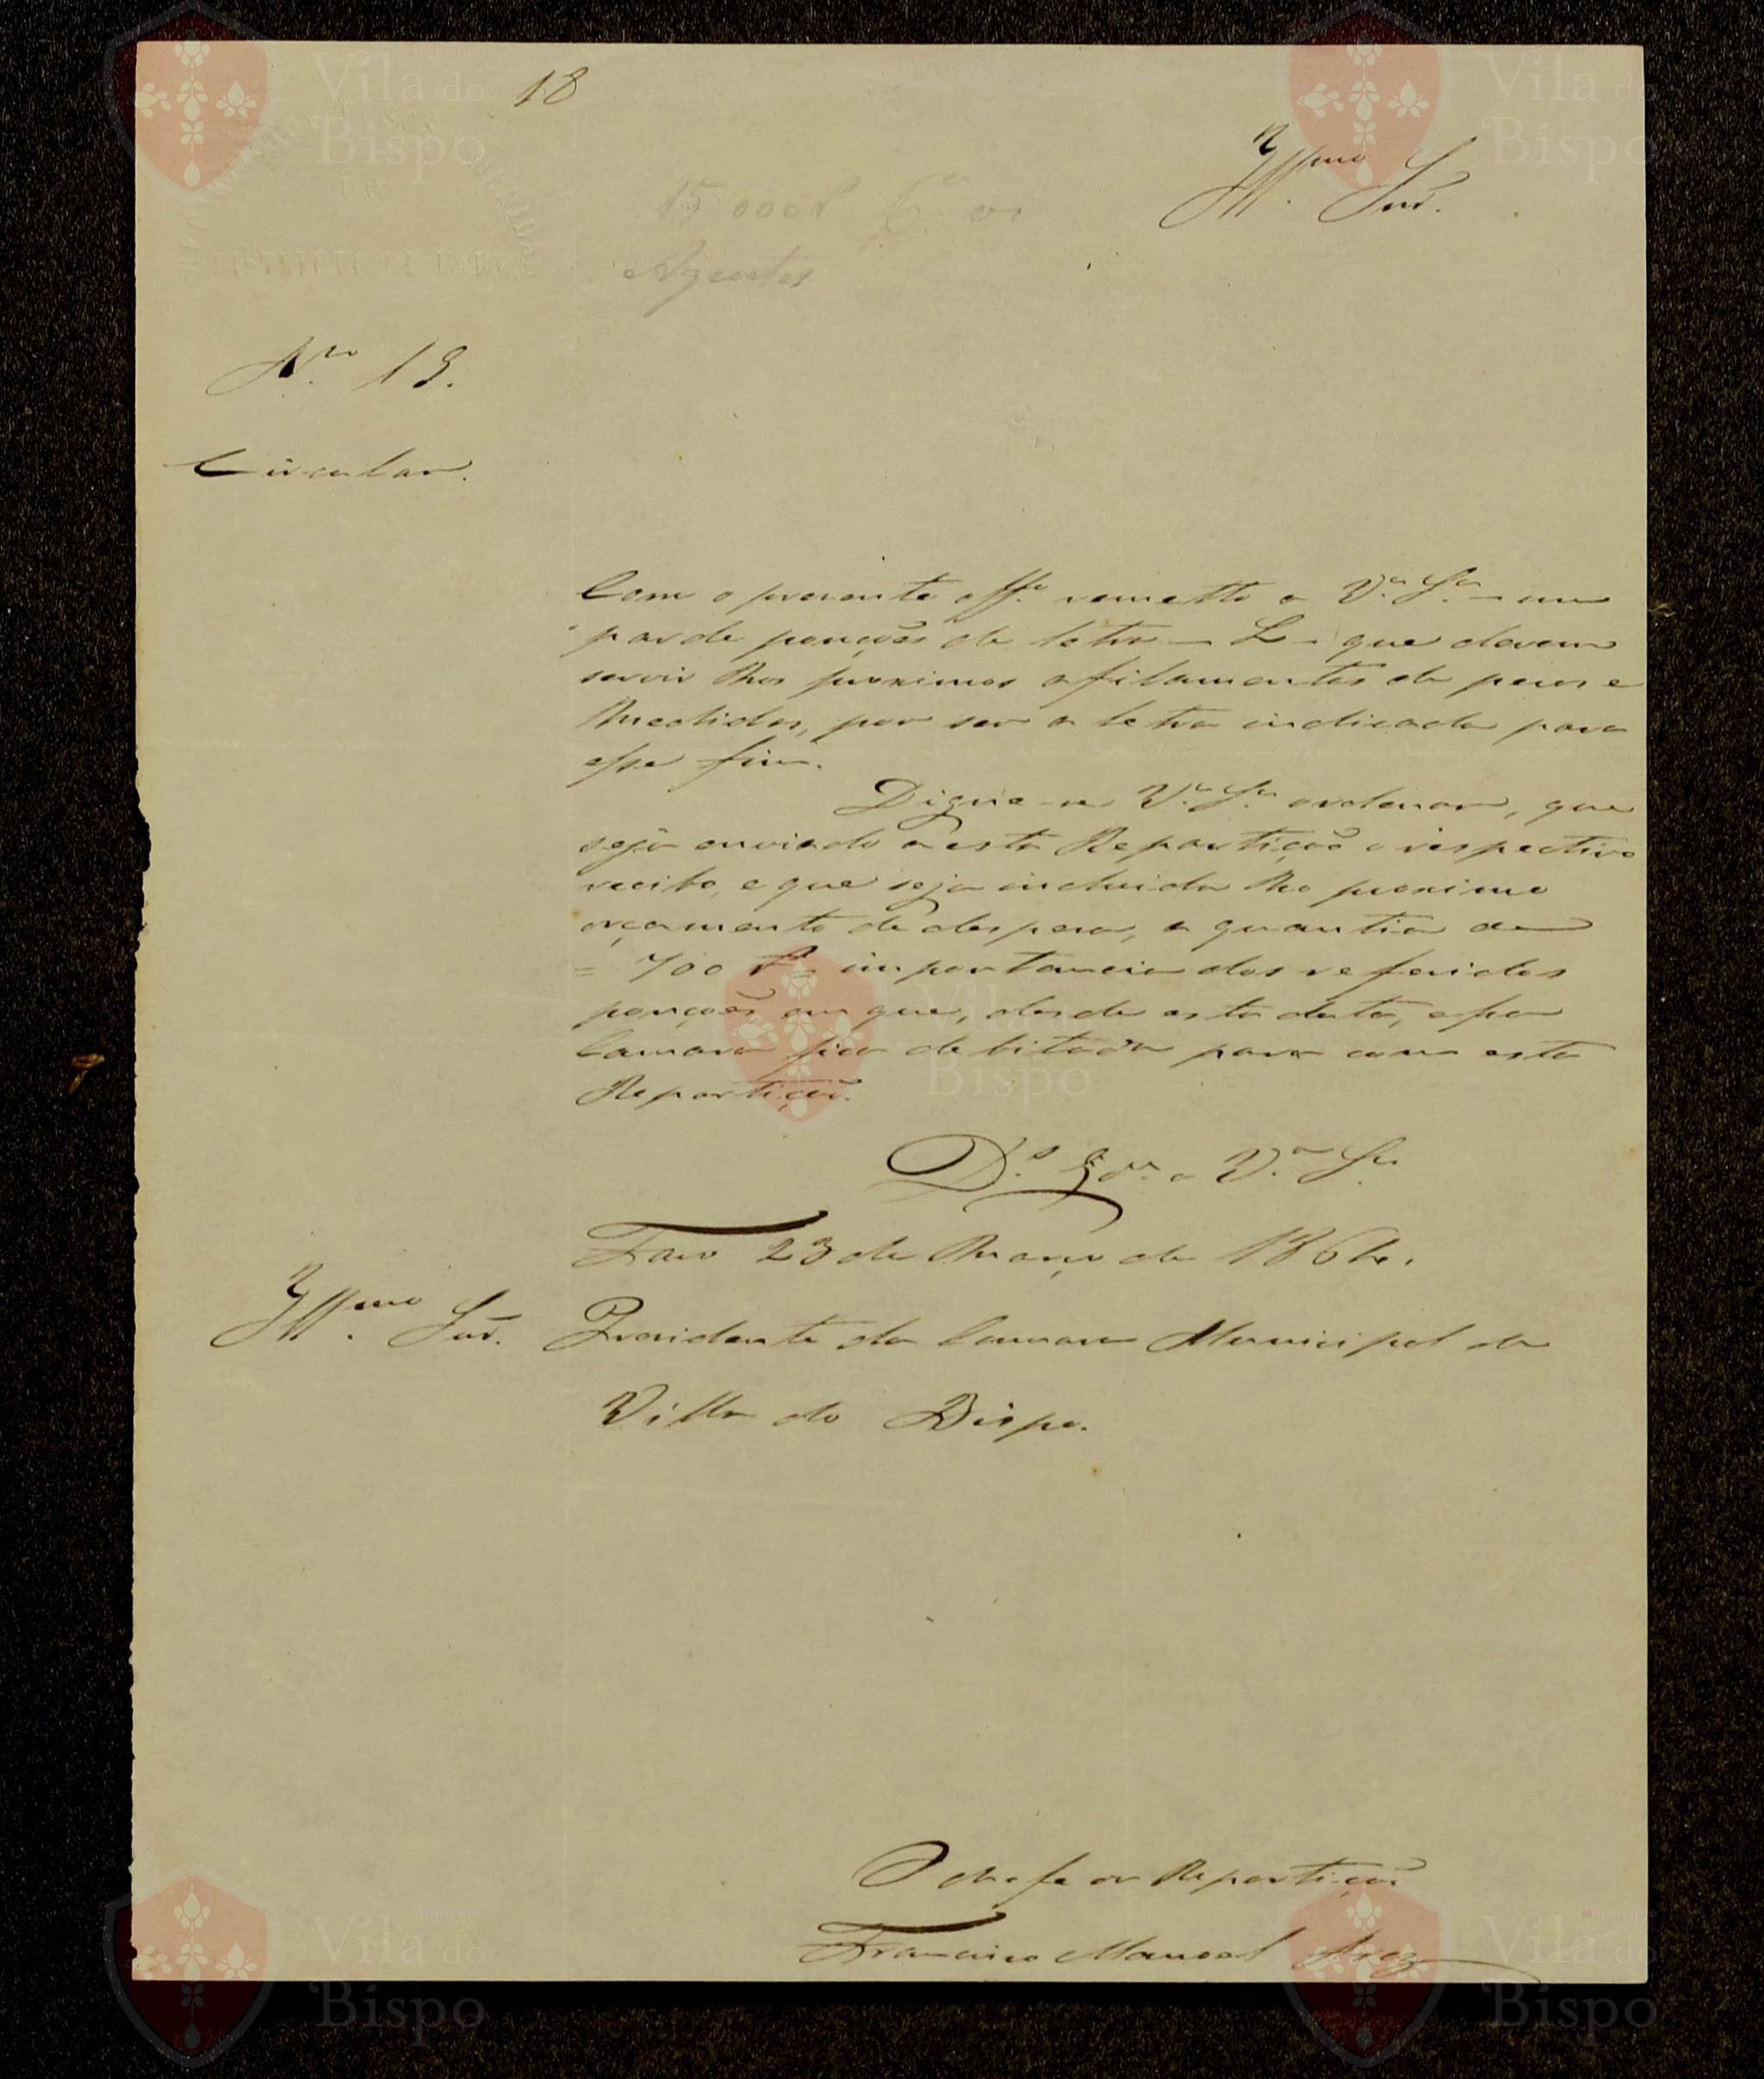 18
Illmo Snr.
15.000
Agentes
DISTRICTO DE FARO
Nro 13.
Circular.
Com o presente offo remetto a Va. Sa. — um
par de ponções da letra — L — que devem
servir nos proximos afilamentos de pesos e
medidas, por ser a letra indicada para
esse fim.
Digne-se Va. Sa. ordenar, que
seja enviado a esta Repartição o respectivo
recibo, e que seja incluida no proximo
orçamento de despesa, a quantia de
= 700 rs = importancia dos referidos
ponções em que, desde esta data, essa
Camara fica debitada para com esta
Repartição.
Ds. gde. a Va. Sa.
Faro 23 de Março de 1864.
Illmo Snr. Presidente da Camara Municipal de
Villa do Bispo.
O chefe da Repartição
Francisco Manoel
Vila do Bispo
Vila do Bispo
Vila do Bispo
Vila do Bispo
Vila do Bispo